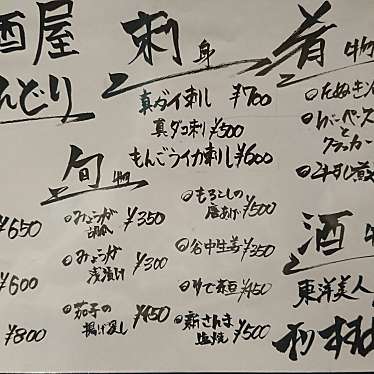 酒屋
んどり
刺身
真ダイ刺し ¥700
真ダコ刺 ¥500
もんごうイカ刺し ¥600
肴物
レバーペースト
と
クラッカー
牛すじ煮
旬物
みょうが ¥350
みょうが
浅漬け ¥300
茄子の
揚げ浸し ¥450
もろこしの
唐あげ ¥500
谷中生姜 ¥350
ゆで茶豆 ¥450
新さんま
塩焼 ¥500
¥650
¥600
¥800
酒
東洋美人